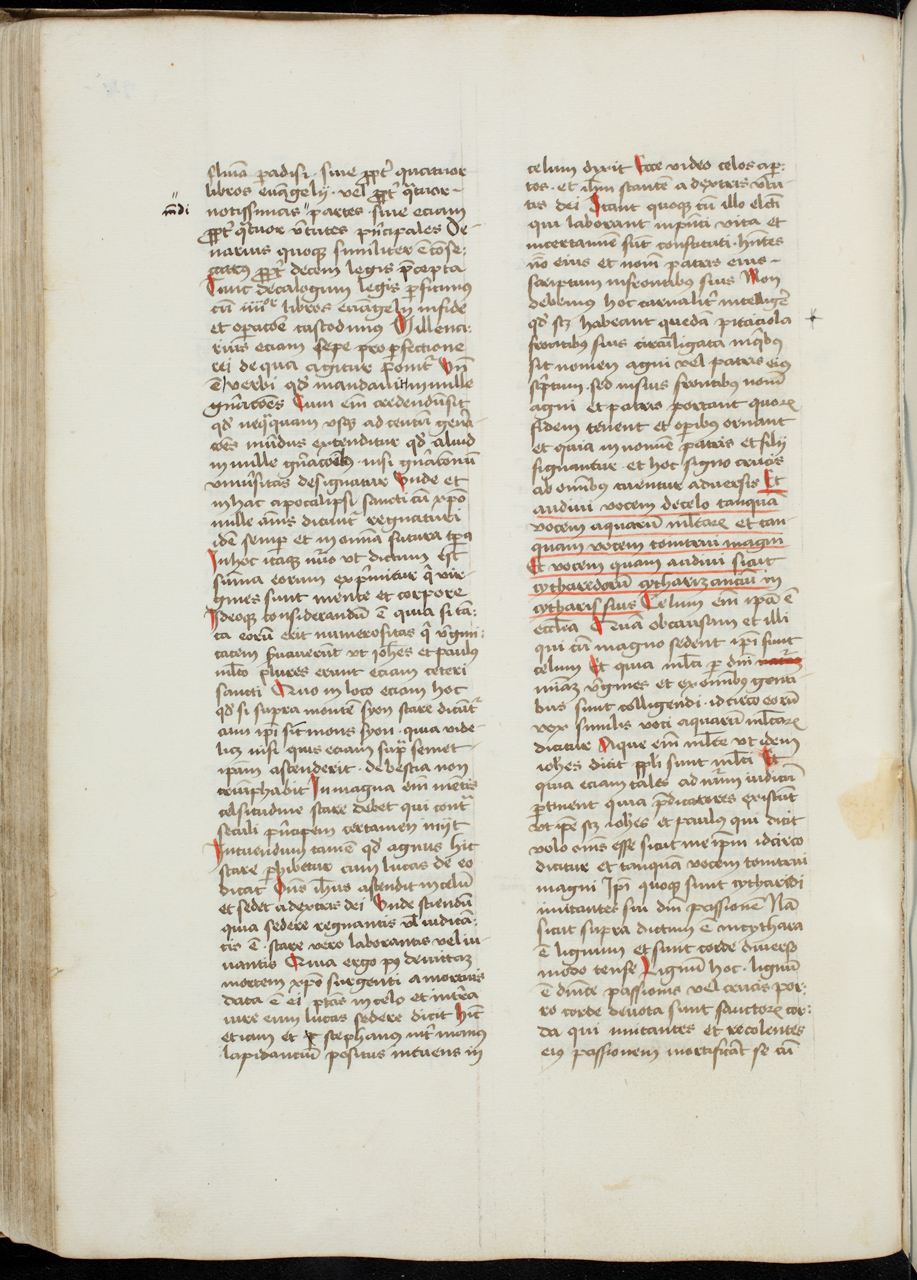 fluia padisi · siue ꝓpt quatuor
libros euāgelij · vel ꝓpt qͣtuor
mūdi
notissimas " partes · siue eciam
ꝓpt qͣtuor v̄tutes pͥncipales De
narius quoqꝫ similiter ē cōse
ꝓpt decem legis p̄cepta
decalogum legis ꝑficimus
cū iiiiᵒʳ libros euāgelij in fide
et oꝑacōe custodimus Millena
rius eciam sepe pro perfectione
rei de qua agitur ponit᷑ Vn̄
ē verbi qd̓ mandauit in mille
gn̄acōes Cum em̄ credendū sit
qd̓ neqͣquam vsqꝫ ad centū gen̄a
cōes mūdus extenditur qd̓ aliud
in mille gn̄acōibꝫ · nisi gn̄acionū
vniu̓sitas designatur Vnde et
in hac apocalipsi sancti cū xp̄o
mille annis dicunt᷑ regnaturi
idē semꝑ et in om̄ia futura tꝑa
In hoc itaqꝫ nūo vt dictum est
sūma eorum exprimitur qͥ vir
gines sunt mente et corpore
Ideoqꝫ considerandū ē quia si tā
ta eorū erit numerositas qͥ v̓gini
tatem seruauerūt vt Ioh̄es et paulus
ml̄to plures erunt eciam ceteri
sancti Quo in loco eciam hoc
qd̓ si supra montē syon stare dicūt᷑
cum ip̄i sit mons syon · quia vide
licꝫ nisi quis eciam supͣ semet
ipm̄ ascenderit · de bestia non
triūphabit In magna em̄ mētis
celsitudine stare debet qui contͣ
seculi pͥncipem certamen inijt
Intuendum tamē qd̓ agnus hic
stare ꝑhibetur cum lucas de eo
dicat Dn̄s ih̄us ascendit in celū
et sedet a dextris dei Vnde sciendū
quia sedere regnantis vl̓ iudicā
tis ē · stare vero laborantis vel iu
uantis Quia ergo pꝰ deuictaꝫ
mortem xp̄o surgenti a mortuis
data ē ei pt̄as in celo et in tr̄a
iure eum lucas sedere dicit Hīc
eciam et stephanus int̓ manus
lapidanciū positus intuens in
celum dixit Ecce video celos aꝑ
tos · et ih̄m stantē a dextris v̓tu
tis dei Stant quoqꝫ cū illo elc̄ti
qui laborant in pn̄ti vita et
in certamīe sūt constituti · hn̄tes
nō eius et nom̄ patris eius
scriptum in frontibus suis Non
debemus hoc carnalit᷑ intelliger̄
qd̓ scꝫ habeant quedā pitaciola
frontibus suis circūligata in qͥbus
sit nomen agni vel patris eiꝰ
sc̓ptum · sed in suis frontibus nom̄
agni et patris portant quoꝝ
fidem tenent et oꝑibus ornant
et quia in nomīe patris et filij
signantur · et hoc signo crucis
ab om̄ibus tuentur aduersis Et
audiui vocem de celo tanquā
vocem aquarū ml̄taꝝ et tan
quam vocem tonitrui magni
Et vocem quam audiui sicut
cytharedorū cytharizanciū in
cytharis suis Celum em̄ ipā ē
eccl̄ia Quā ob causam et illi
qui cū magno sedent ip̄i sunt
celum Et quia ml̄ti ꝑ dn̄i
v̓gines et ex om̄ibus genti
bus sunt colligendi · idcirco eorū
vox similis voci aquarū ml̄taꝝ
dicitur Aque em̄ ml̄te vt idem
ioh̄es dicit ppl̄i sunt ml̄ti Et
quia eciam tales ad nr̄m iudiciū
ꝑtinent quia p̄dicatores existūt
vt ip̄e scꝫ ioh̄es et paulus qui dicit
volo om̄s esse sicut me ip̄m idcirco
dicitur et tanquam vocem tonitrui
magni Ip̄i quoqꝫ sunt cytharedi
imitantes sui dn̄i passionē Nā
sicut supra dictum ē in cythara
ē lignum et sunt corde diuerso
modo tense Lignum hoc · lignū
ē dn̄ice passionis vel crucis por
ro corde deuota sunt sanctoꝝ cor
da qui imitantes et recolentes
eiꝰ passionem mortificāt se cū